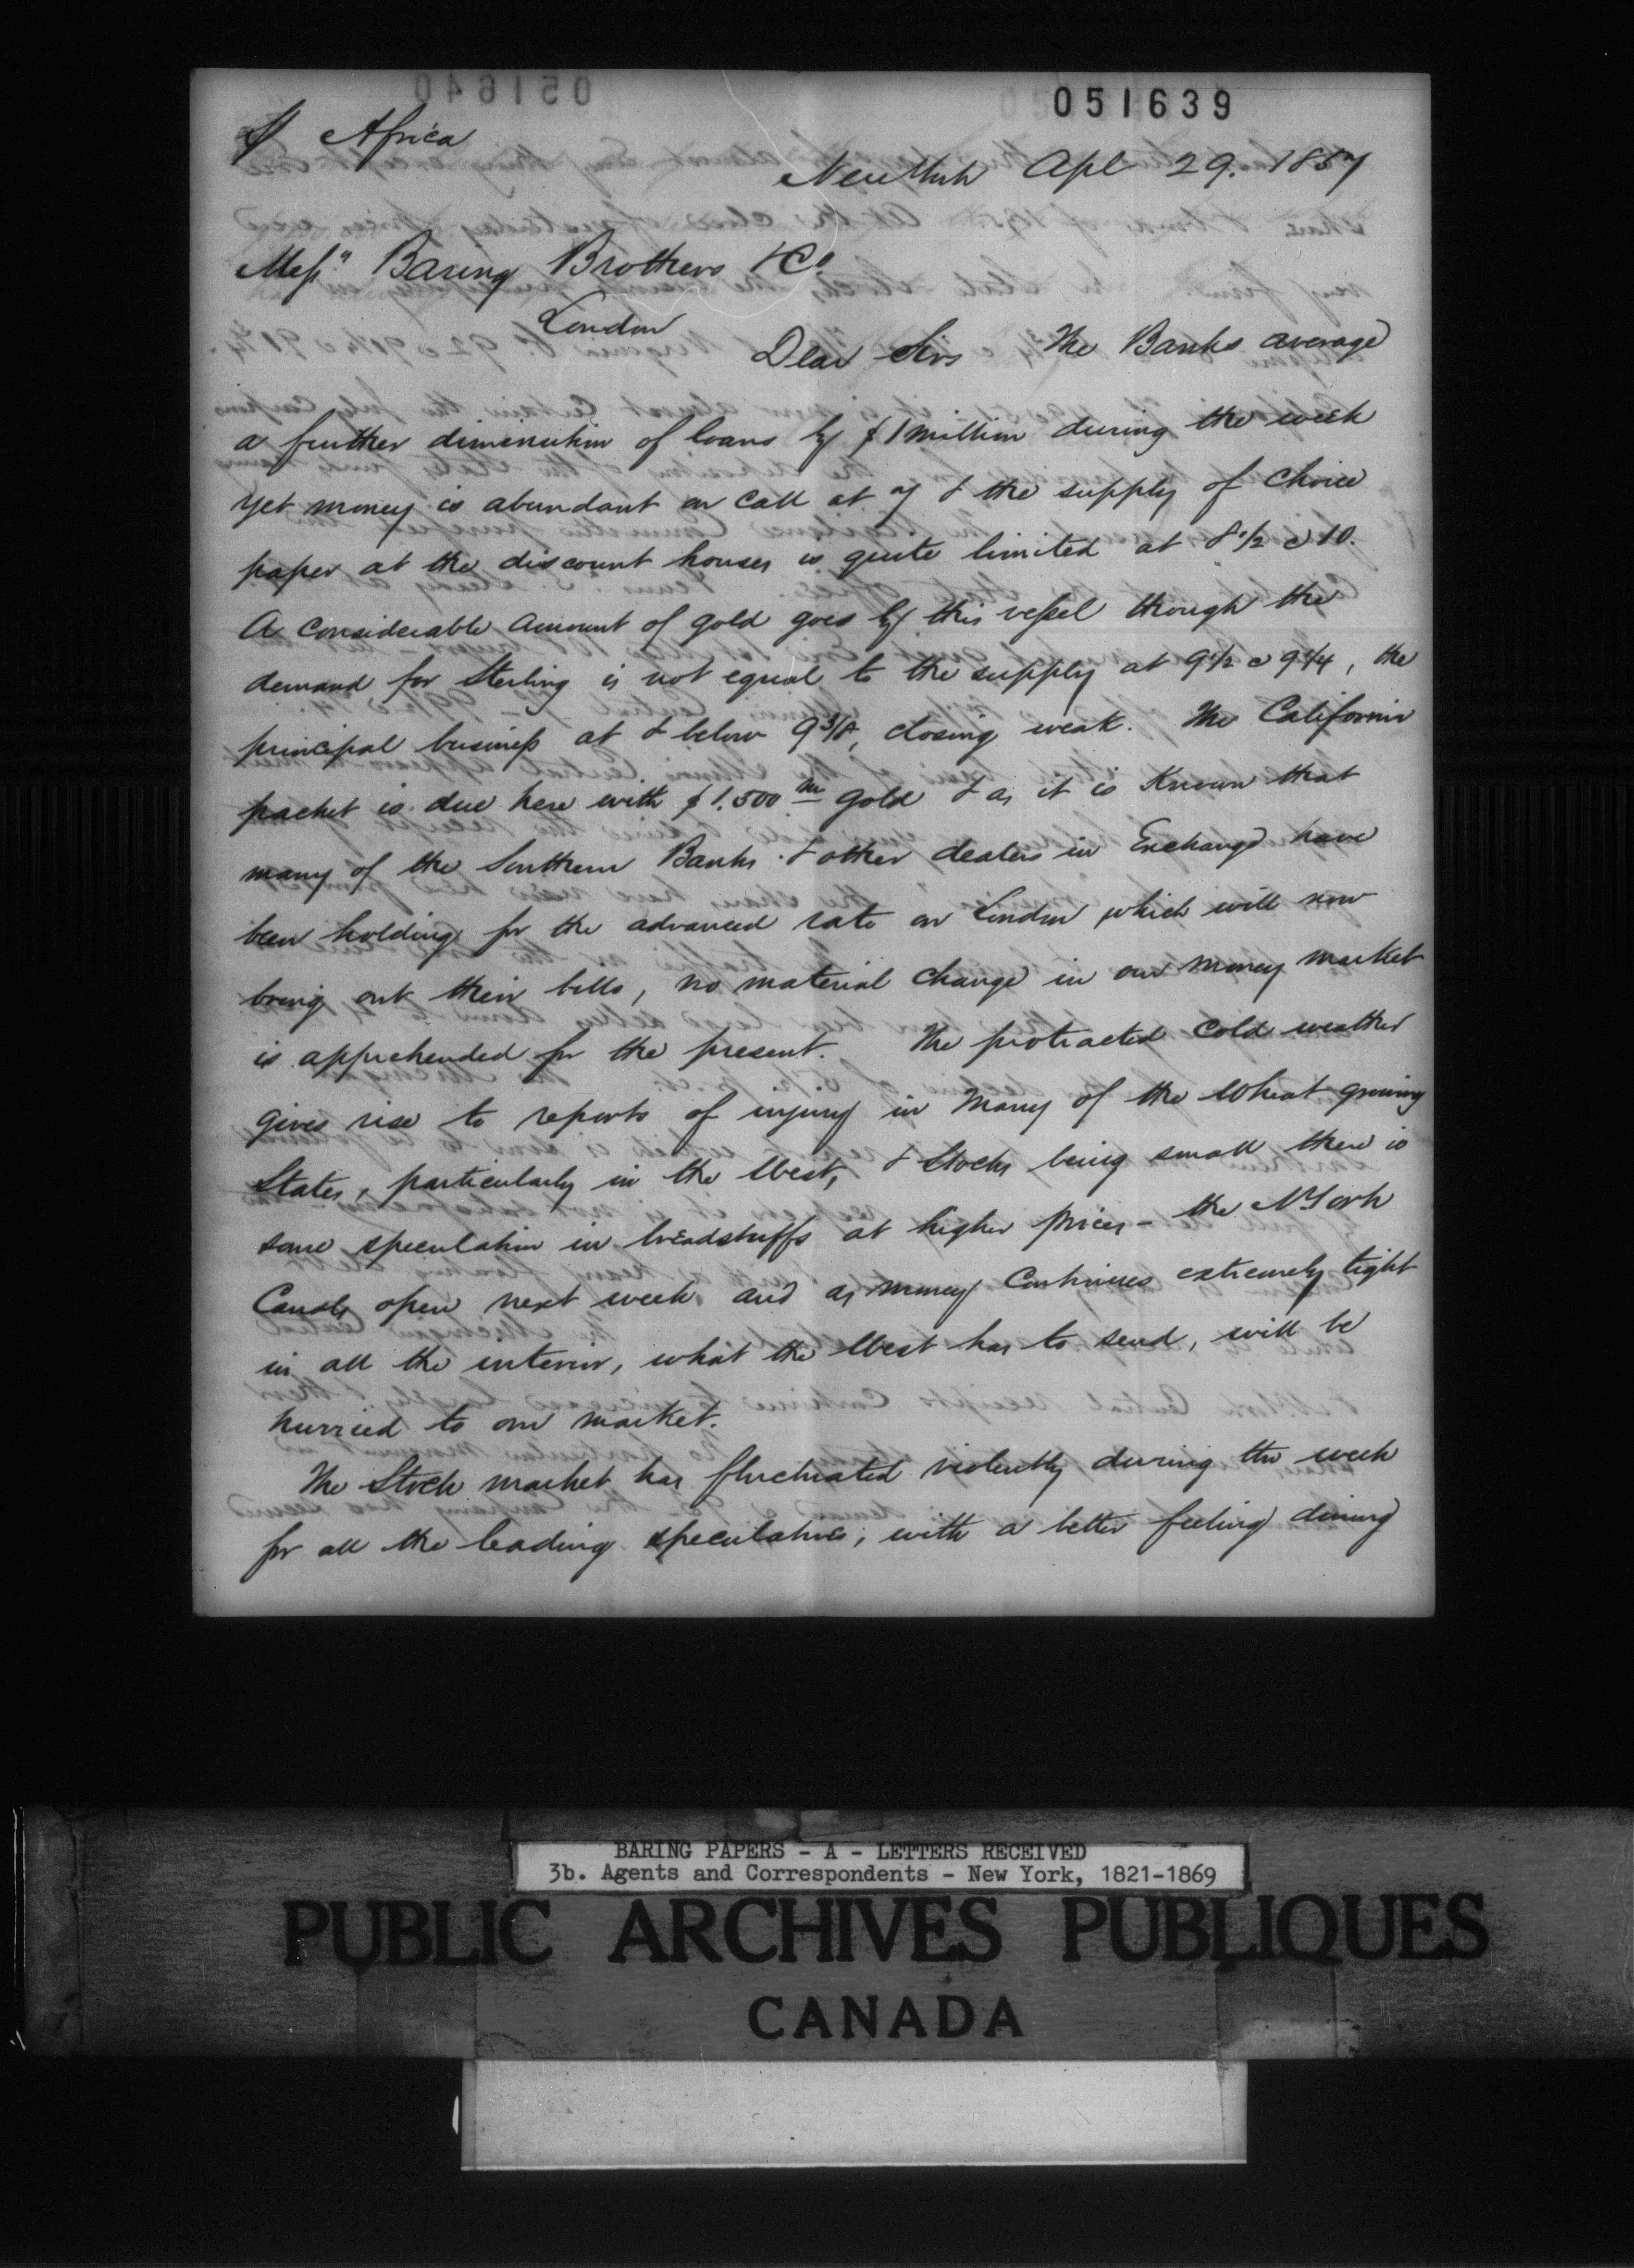 051639
p Africa
New York Apl 29. 1857
Messrs Baring Brothers & Co
London
Dear Sirs The Banks average
a further diminution of loans by $1 million during the week
yet money is abundant on call at 7 & the supply of choice
paper at the discount houses is quite limited at 8 1/2 @ 10.
A considerable amount of gold goes by this vessel though the
demand for Sterling is not equal to the supply at 9 1/2 @ 9 3/4, the
principal business at & below 9 3/8, closing weak. The California
packet is due here with $1.500 m gold & as it is known that
many of the Southern Banks & other dealers in Exchange have
been holding for the advanced rate on London which will now
bring out their bills, no material change in our money market
is apprehended for the present. The protracted cold weather
gives rise to reports of injury in many of the Wheat growing
States, particularly in the West, & Stocks being small there is
some speculation in breadstuffs at higher prices - the N York
Canals open next week and as money continues extremely tight
in all the interior, what the West has to send, will be
hurried to our market.
The Stock market has fluctuated violently during the week
for all the leading speculatives, with a better feeling during
BARING PAPERS - A - LETTERS RECEIVED
3b. Agents and Correspondents - New York, 1821-1869
PUBLIC ARCHIVES PUBLIQUES
CANADA